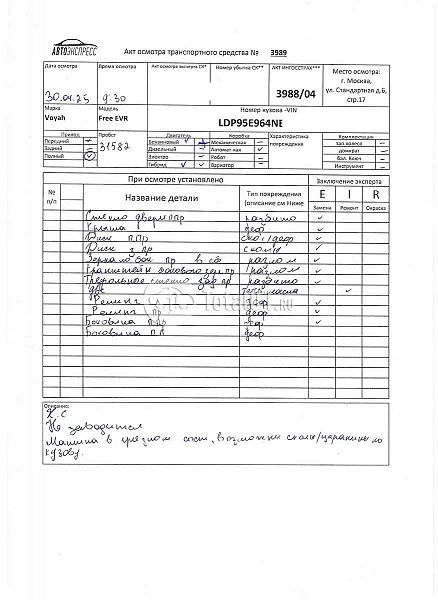 АВТОЭКСПРЕСС
Акт осмотра транспортного средства № 3989
Дата осмотра
Время осмотра
Акт осмотра эксперта СК*
Номер убытка СК**
АКТ ИНГОССТРАХ***
Место осмотра:
г. Москва,
ул. Стандартная д.6,
стр.17
30.04.25
9:30
3988/04
Марка
Модель
Номер кузова -VIN
Voyah
Free EVR
LDP95E964NE
Привод
Пробег
Двигатель
Коробка
Характеристика
повреждения
Комплектация
Передний
31582
Бензиновый
Механическая
Зап.колесо
Задний
Дизельный
Автомат кая
домкрат
Полный
Электро
Робот
бал. Ключ
Гибрид
Вариатор
Инструмент
При осмотре установлено
Заключение эксперта
№
п/п
Название детали
Тип повреждения
(описание см.Ниже
E I R
Замена Ремонт Окраска
Стекло двери ппр разбито
Крыша деф
Диск п.пр скол/деф
Диск з.пр сколы
Зеркало бок пр в сб разлом
разлом
стекло зад пр разбито
Рейлинг деф
Рейлинг пр деф
Боковина деф
Боковина деф
Описание:
Х.С
Не заводится
Машина в грязном сост, возможны сколы/царапины по
кузову.